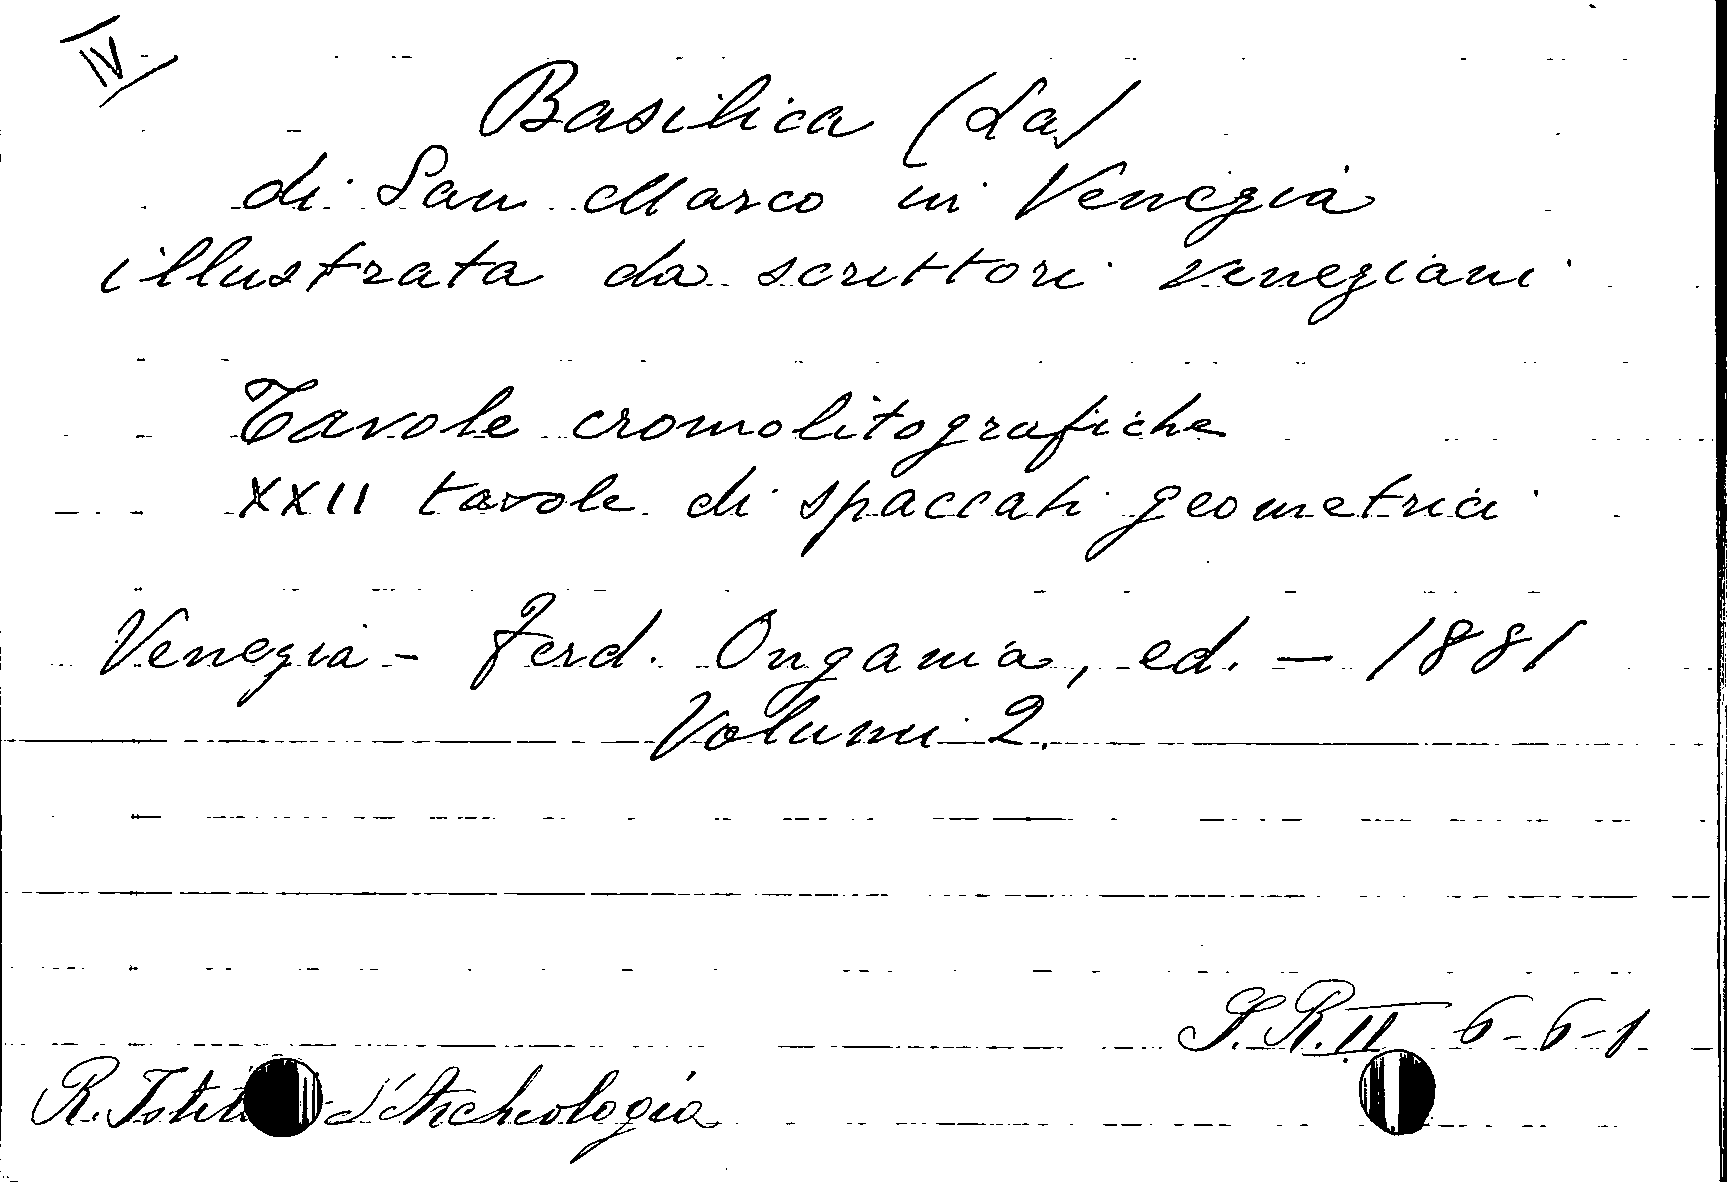 IV
Basilica (La)
di San Marco in Venezia
illustrata da scrittori veneziani
Tavole cromolitografiche
XXII tavole di spaccati geometrici
Venezia - Ferd. Ongania, ed. - 1881
Volumi 2.
S.R.II 6-6-1
R. d'Archeologia